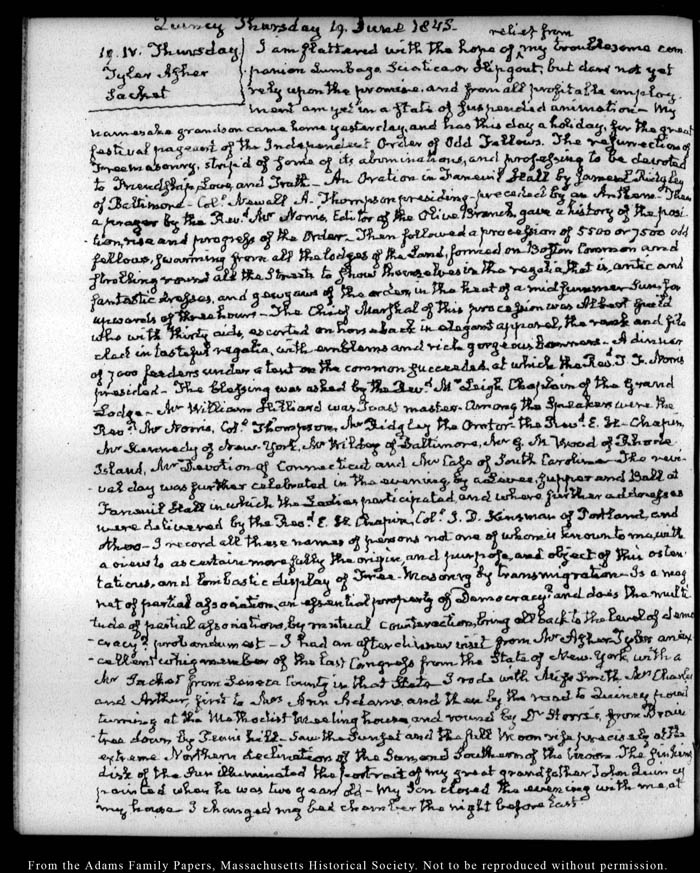 Quincy Thursday 19. June 1845.
19. IV. Thursday
Tyler Asher
Sacket
relief from
I am flattered with the hope of my troublesome com
panion Lumbago Sciatica or Hip gout, but dare not yet
rely upon the promise, and from all profitable employ
ment am yet in a state of suspended animation — My
namesake grandson came home yesterday, and has this day a holiday, for the great
festival pageant of the Independent Order of Odd Fellows. The resurrection of
Freemasonry, strip'd of some of its abominations, and professing to be devoted
to Friendship, Love, and Truth — An Oration in Faneuil Hall by James L. Ridgley
of Baltimore — Col. Newell A. Thompson presiding — preceded by an Anthem. Then
a prayer by the Rev.d Mr Norris, Editor of the Olive Branch, gave a history of the posi
tion, rise and progress of the Order. Then followed a procession of 5500 or 7500 odd
fellows, swarming from all the lodges of the Land, formed on Boston Common and
strolling round all the Streets to show themselves in the regalia, that is, antic and
fantastic dresses, and gewgaws of the order, in the heat of a midsummer Sun, for
upwards of three hours — The Chief Marshal of this procession was Albert Guild
who with thirty aids, escorted on horseback in elegant apparel, the rank and file
clad in tasteful regalia, with emblems and rich gorgeous banners — A dinner
of 7000 feeders under a tent on the common succeeded, at which the Rev.d T. F. Norris
presided — The blessing was asked by the Rev.d Mr Leigh Chaplain of the Grand
Lodge — Mr William Hilliard was Toast master — Among the Speakers were the
Rev.d Mr Norris, Col. Thompson, Mr Ridgley the Orator — the Rev.d E. H. Chapin,
Mr Kennedy of New-York, Mr Wildey of Baltimore, Mr G. M. Wood of Rhode
Island, Mr Devotion of Connecticut and Mr Case of South Carolina — The revi
val day was further celebrated in the evening, by a Levee, Supper and Ball at
Faneuil Hall in which the Ladies participated, and where further addresses
were delivered by the Rev.d E. H. Chapin, Col. J. D. Kinsman of Portland, and
others — I record all these names of persons not one of whom is known to me, with
a view to ascertain more fully the origin, and purpose, and object of this osten
tatious, and bombastic display of Free-Masonry by transmigration — Is a mag
net of partial association, an essential property of Democracy? and does the multi
tude of partial associations, by mutual counteraction, bring all back to the level of demo
cracy? probandum est — I had an after dinner visit from Mr Asher Tyler an ex
cellent whig member of the last Congress from the State of New-York, with a
Mr Sacket from Seneca County in that State — I rode with Miss Smith, Mrs Charles
and Arthur, first to Mrs Ann Adams, and then by the road to Quincy point
turning at the Methodist Meeting house and round by Dr from Brain
tree down by hill — Saw the Sunset and the full Moon rise precisely at the
extreme Northern declination of the Sun, and Southern of the Moon — The sinking
disk of the Sun illuminated the portrait of my great grandfather John Quincy
painted when he was two years old — My Son closed the evening with me, at
my house — I changed my bed chamber the night before last.
From the Adams Family Papers, Massachusetts Historical Society. Not to be reproduced without permission.